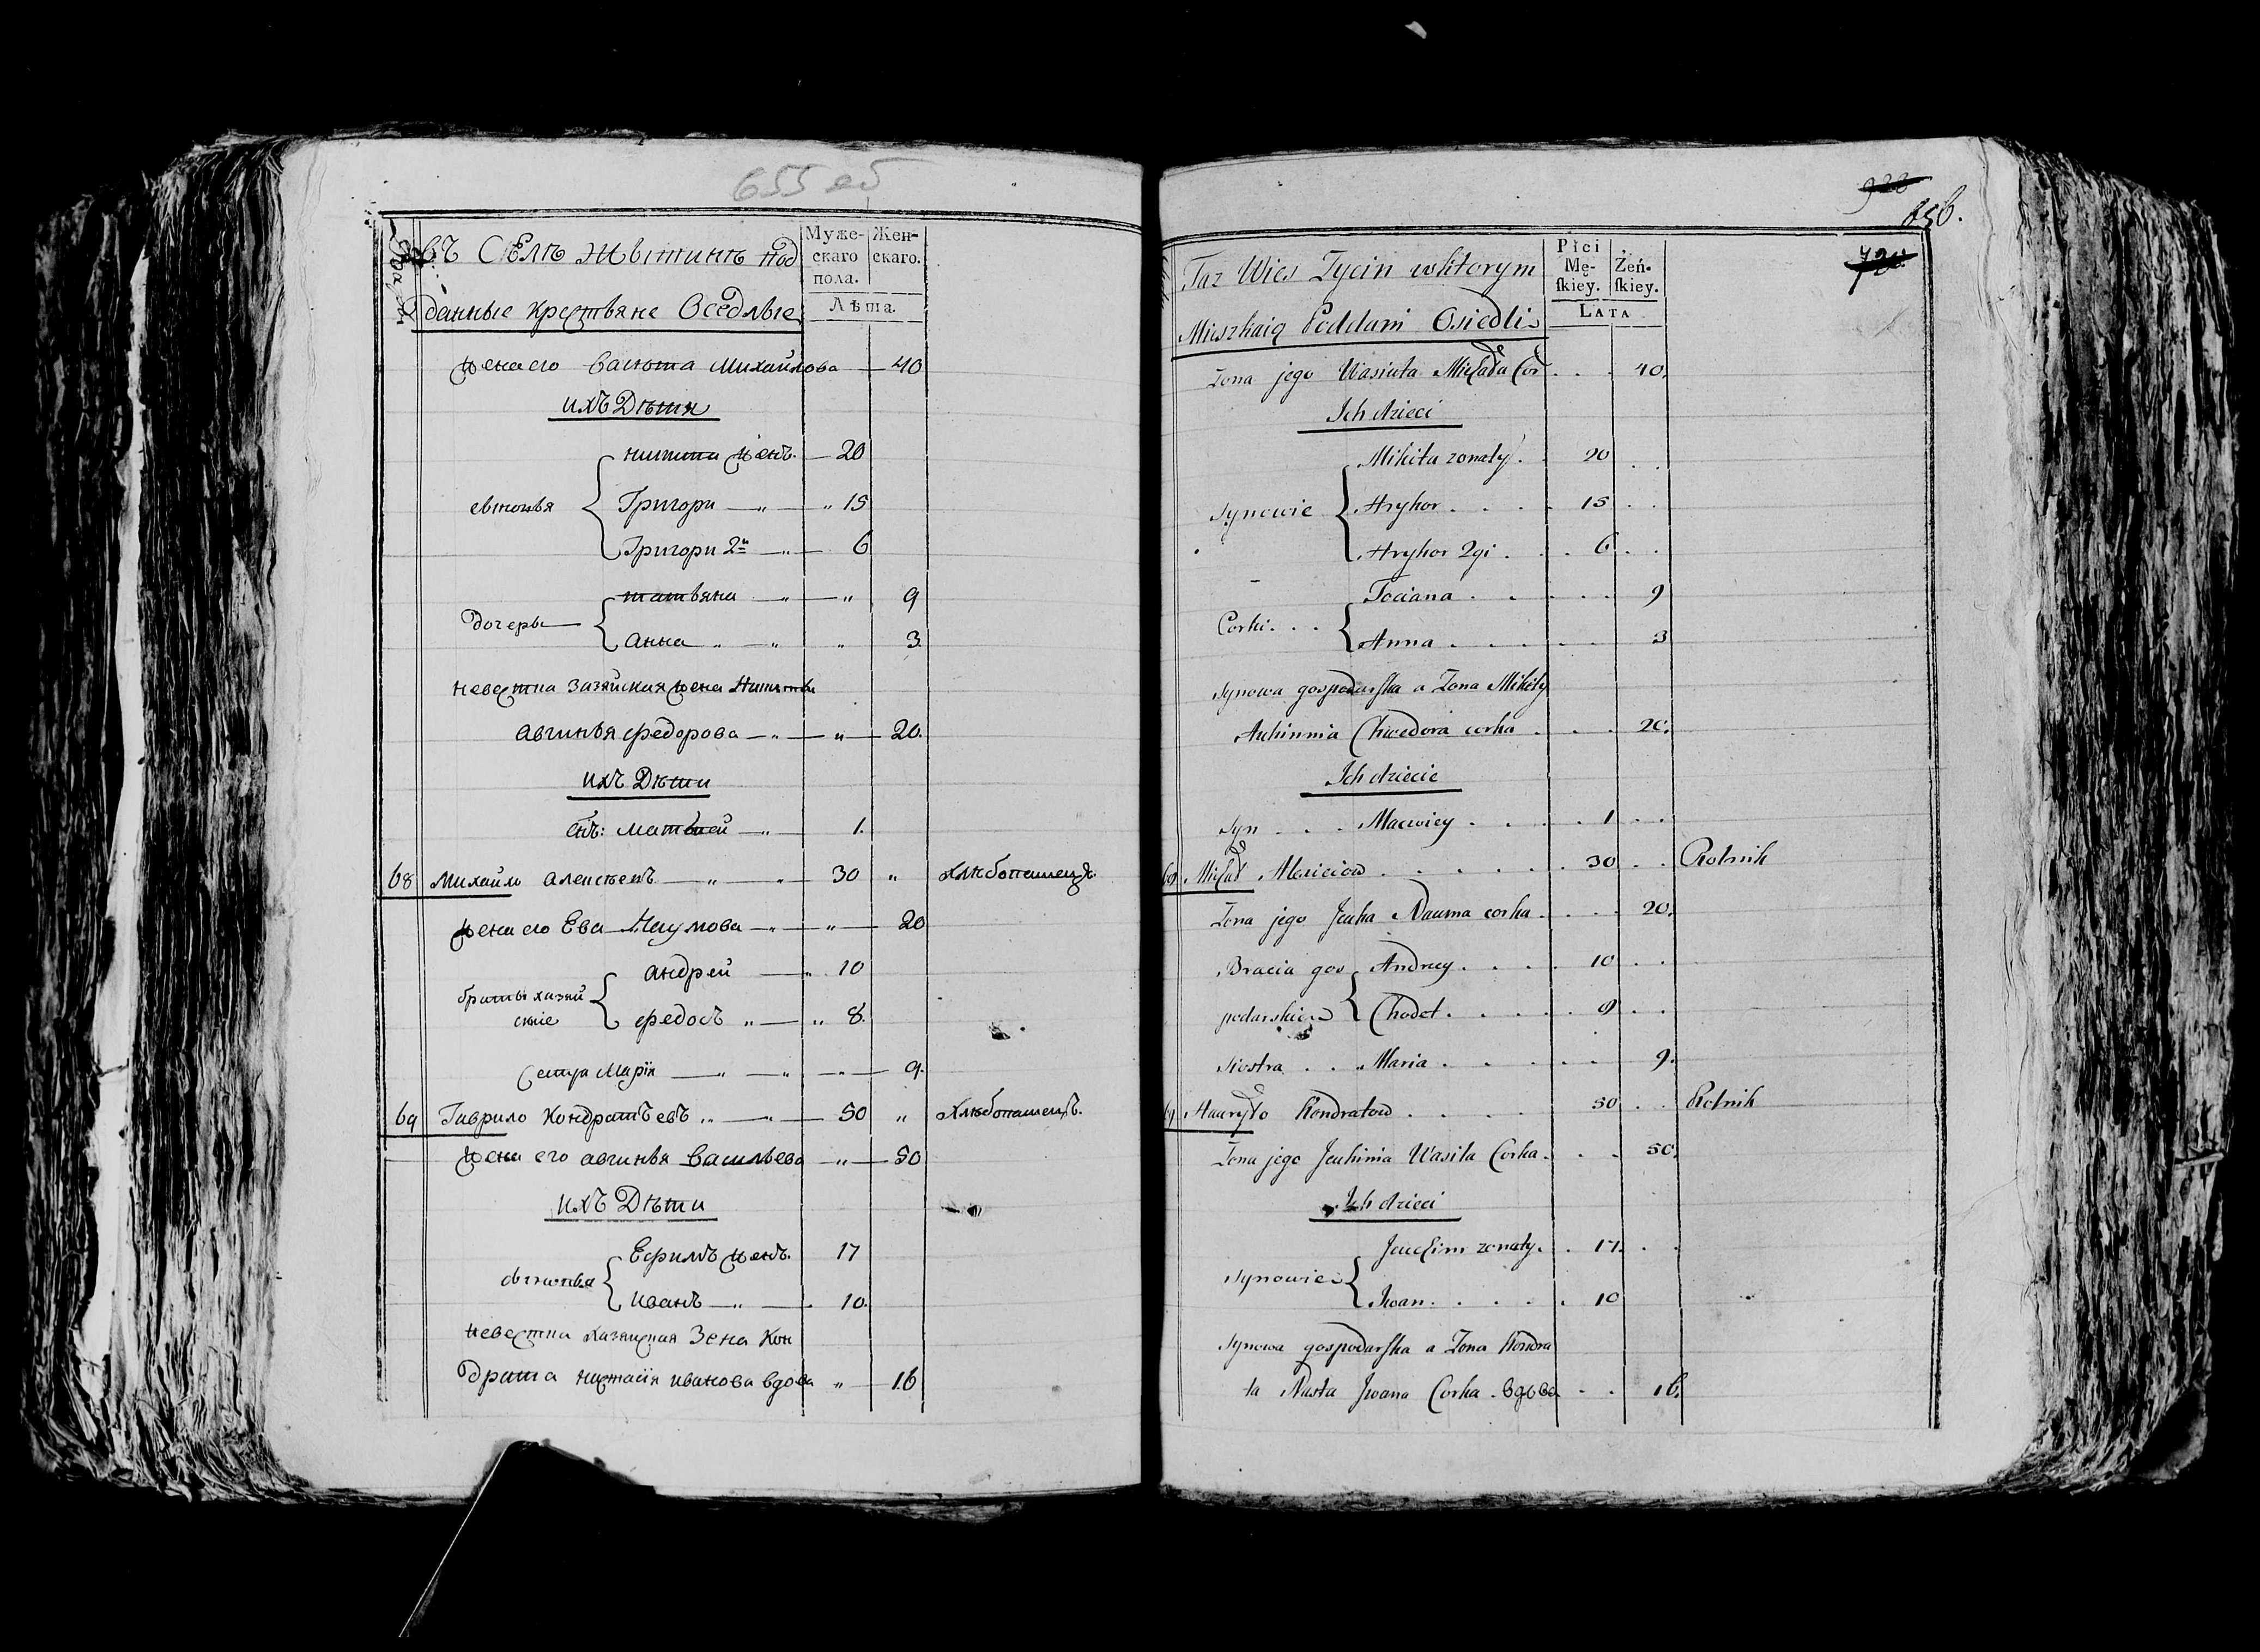 655 об
въ Селѣ Жвтинѣ под
данные крестьяне Оседлые
Муже-
скаго
пола.
Жен-
скаго.
Лѣта.
жена его Васюта Михайлова — 40
ихъ Дѣти
никита жен. — 20
сыновья Григори — „ — „ 15
Григори 2й — „ — 6
татьяна — „ — „ 9
дочеры — Анна „ — „ „ 3
невестка хазяйская жена Никиты
Авгинья Федорова — „ — „ — 20.
ихъ Дѣти
снъ: Матвей — „ — 1.
68 Михайло Алексѣевъ — „ — „ — 30 „ хлѣбопашецъ.
жена его Ева Наумова — „ — „ — 20
андрей — „ 10
братья хазяй
ские Федосъ „ — „ 8.
сестра Марія — „ — „ — „ — 9.
69 Гаврило Кондратъевъ „ — „ — 50 „ хлѣбопашецъ.
жена его авгинья Васильева — „ — 50
ихъ Дѣти
Ефимъ жен. 17
сыновья
иванъ — „ — 10.
невестка хазяйская Зена Кон
драта настасія иванова вдова „ 16
928
656.
720
Taz Wies Zycin wktorym
Mieszkaią Poddani Osiedli
Płci
Mę-
ſkiey.
Żeń-
ſkiey.
LATA
Zona jego Wasiuta Michała Cor . . . 40.
Ich dzieci
Mikita zonaty . . 20 . .
Synowie Hryhor . . . . 15 . .
Hryhor 2gi . . . 6 . .
Tociana . . . . . 9
Corki . . . Anna . . . . . 3
Synowa gospodarſka a Zona Mikity
Auhinnia Chwedora corka . . . 20.
Ich dziecie
Syn . . . Macwiey . . . . 1 . .
68 Michał Alexieiow . . . . . . 30 . . Rolnik
Zona jego Jeuha Nauma corka . . . . 20.
Bracia gos Andrey . . . . 10 . .
podarskie Chodot . . . . . 9 . .
Siostra . . . Maria . . . . . 9.
69 Hauryło Kondratow . . . . . 50 . . Rolnik
Zona jego Jeuhinia Wasila Corka . . . 50.
Ich dzieci
Jeuchim zonaty . . 17 . .
Synowie
Jwan . . . . . 10
Synowa gospodarſka a Zona Kondra
ta Nasta Jwana Corka . вдова . . 16.